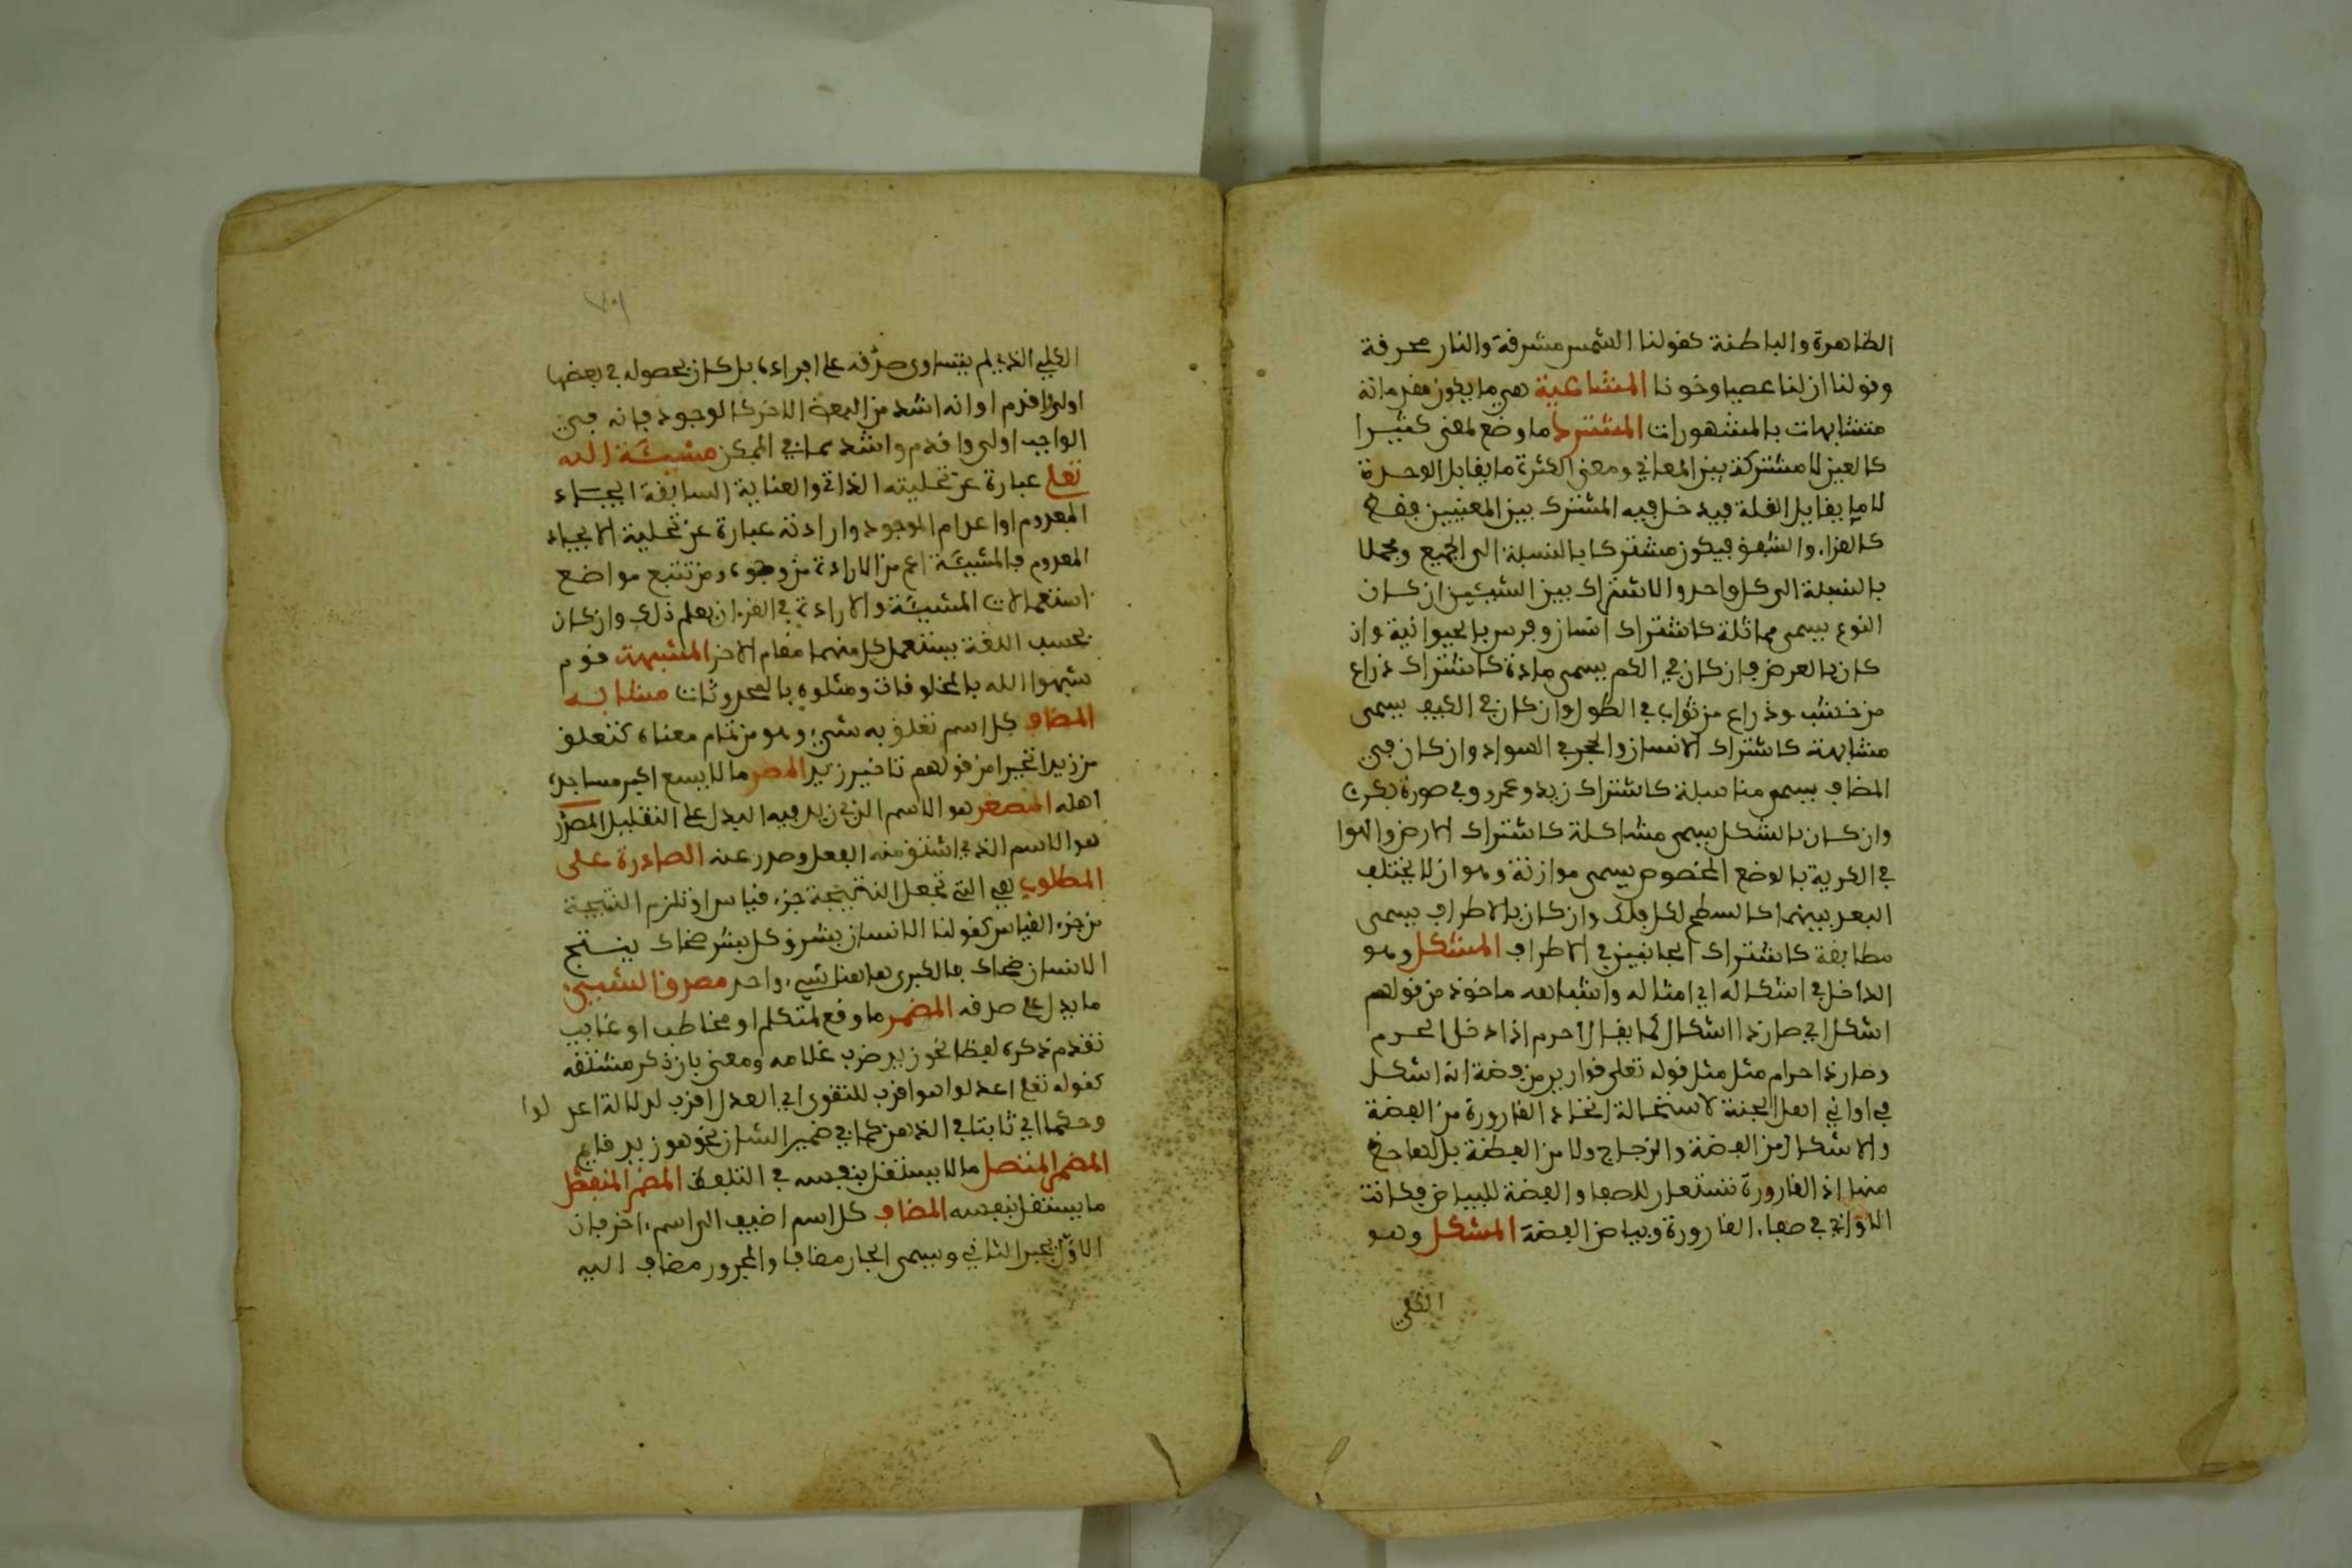 الظاهرة والباطنة كقولنا الشمس مشرقة والنار محرقة
وقولنا ان لنا غضبا وخوفا المشاغبة هي ما يكون مقدماته
متشابهات بالمشهورات المشترك ما وضع لمعنى كثيرا
كالعين لا مشتركة بين المعاني ومعنى الكثرة ما يقابل الوحدة
لا ما يقابل القلة فيدخل فيه المشترك بين المعنيين فقط
كالقراء والشفق فيكون مشتركا بالنسبة الى الجميع ومجملا
بالنسبة الى كل واحد والاشتراك بين الشيئين ان كان
النوع يسمى مماثلة كاشتراك انسان وفرس بالحيوانية وان
كان بالعرض فان كان في الكم يسمى مادة كاشتراك ذراع
من خشب وذراع من ثواب في الطول وان كان في الكيف يسمى
مشابهة كاشتراك الانسان والحجر في السواد وان كان في
المضاف يسمى مناسبة كاشتراك زيد وعمرو في صورة بكر
وان كان بالشكل يسمى مشاكلة كاشتراك الارض والهوا
في الكرية بالوضع المخصوص يسمى موازنة وهو ان لا يختلف
البعد بينهما كالسطح لكل فلك وان كان بالاطراف يسمى
مطابقة كاشتراك الجانبين في الاطراف المشكل وهو
الداخل في اشكاله اي امثاله واشباهه ماخوذ من قولهم
اشكل اي صار ذا اشكال كما يقال احرم اذا دخل الحرم
وصار ذا حرام مثل مثل قوله تعلى قوارير من فضة انه اشكل
في اواني اهل الجنة لاستحالة اتخاذ القارورة من الفضة
والاشكال من الفضة والزجاج ولا من الفضة بل لها حظ
منها اذ القارورة تستعار للصفا والفضة للبياض فكانت
الاواني في صفاء القارورة وبياض الفضة المشكل وهو
الكلي
الكلي الذي لم يتساوى صدقه على افراده بل كان حصوله في بعضها
اولى اقدم او انه اشد من البعض الاخر كالوجود فانه في
الواجب اولى واقدم واشد مما في الممكن مشيئة الله
تعلى عبارة عن تجليته الذات والعناية السابقة ايجاد
المعدوم او اعدام الموجود وارادته عبارة عن تجلية الايجاد
المعدوم فالمشيئة اعم من الارادة من وجوه ومن تتبع مواضع
استعمالات المشيئة والارادة في القران يعلم ذلك وان كان
بحسب اللغة يستعمل كل منهما مقام الاخر المشبهة قوم
شبهوا الله بالمخلوقات ومثلوه بالمحدوثات مشابه
المضاف كل اسم تعلق به شيء وهو من تمام معناه كتعلق
من زيد اخيرا من قولهم تاخير زيد المصر ما لا يسع اكبر مساجده
اهله المصغر هو الاسم الذي زيد فيه ليدل على التقليل المصدر
هو الاسم الذي اشتق منه الفعل وصدر عنه الصادرة على
المطلوب هي التي تجعل النتيجة جزء قياس او تلزم النتيجة
من جزء القياس كقولنا الانسان بشر وكل بشر ضحاك ينتج
الانسان ضحاك فالكبرى هاهنا شيء واحد مصدق الشيء
ما يدل على صدقه المضمر ما وقع لمتكلم او مخاطب او غايب
تقدم ذكره لفظا نحو زيد ضرب غلامه ومعنى بان ذكر مشتقه
كقوله تعلى اعدلوا هو اقرب للتقوى اي العدل اقرب لدلالة اعدلوا
وحكما اي ثابتا في الذهن كما في ضمير الشان نحو هو زيد قايم
المضمر المتصل ما لا يستقل بنفسه في التلفظ المضمر المنفصل
ما يستقل بنفسه المضاف كل اسم اضيف الى اسم اخر فان
الاول يجر الثاني ويسمى الجار مضافا والمجرور مضاف اليه